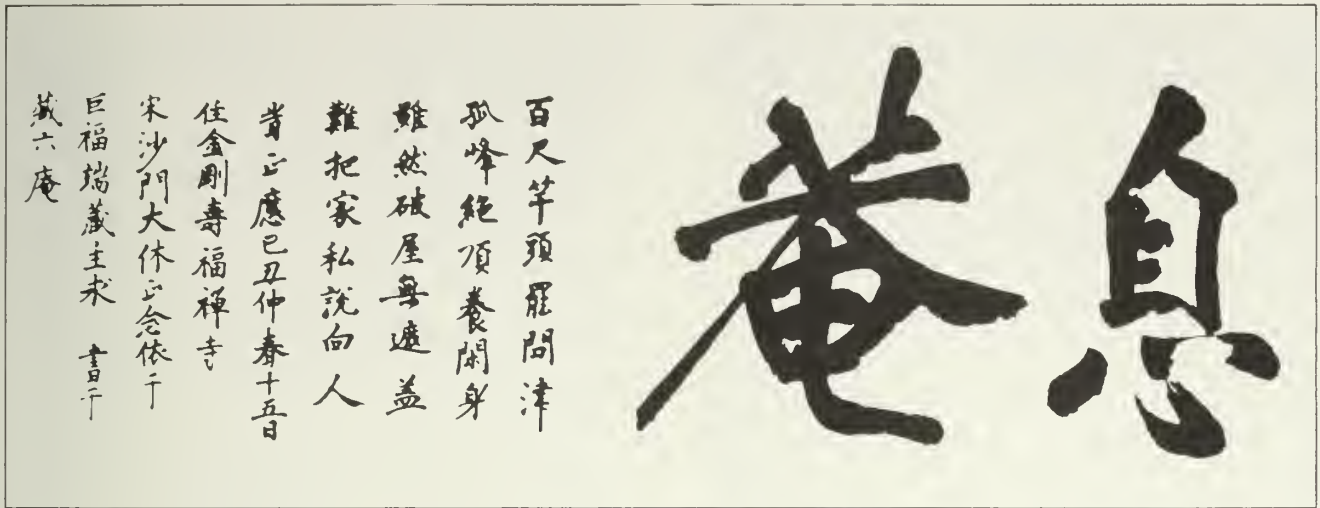 息菴
百尺竿頭罷問津
孤峰絕頂養閑身
雖然破屋無遮蓋
難把家私說向人
旹正應己丑仲春十五日
住金剛壽福禪寺
宋沙門大休正念依于
巨福端藏主求 書于
藏六庵